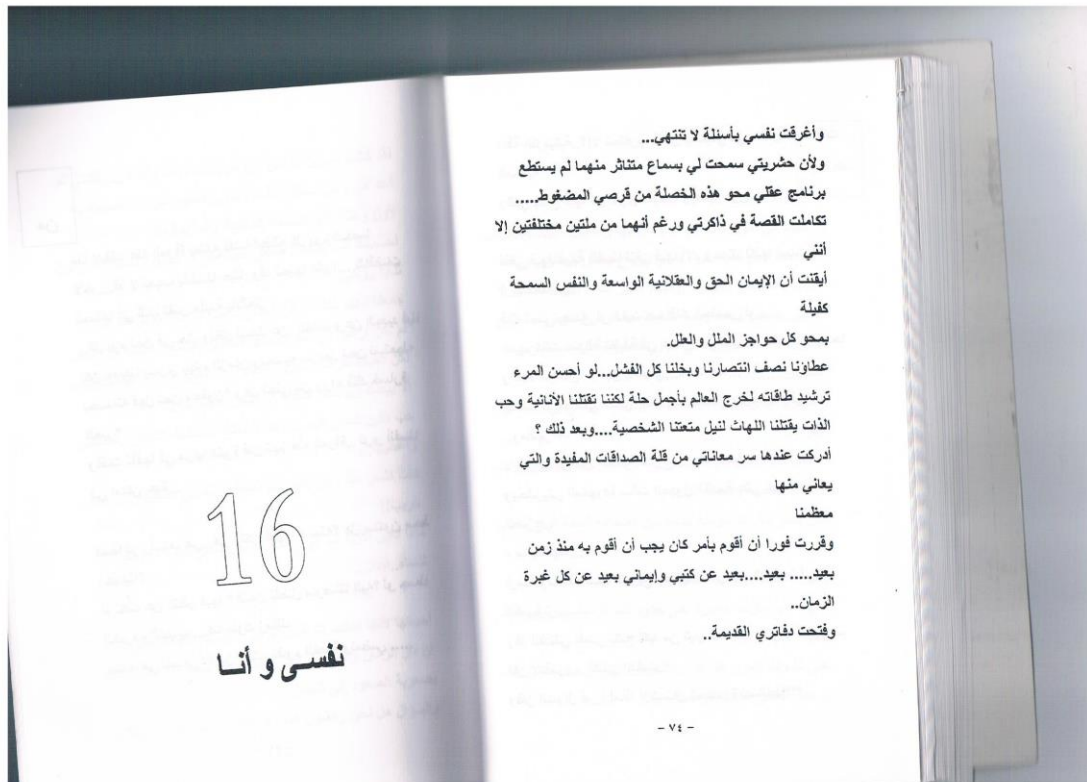 وأغرقت نفسي بأسئلة لا تنتهي...
ولأن حشريتي سمحت لي بسماع متناثر منهما لم يستطع
برنامج عقلي محو هذه الخصلة من قرصي المضغوط.....
تكاملت القصة في ذاكرتي ورغم أنهما من ملتين مختلفتين إلا
أنني
أيقنت أن الإيمان الحق والعقلانية الواسعة والنفس السمحة
كفيلة
بمحو كل حواجز الملل والعلل.
عطاؤنا نصف انتصارنا وبخلنا كل الفشل...لو أحسن المرء
ترشيد طاقاته لخرج العالم بأجمل حلة لكننا تقتلنا الأنانية وحب
الذات يقتلنا اللهاث لنيل متعتنا الشخصية....وبعد ذلك ؟
أدركت عندها سر معاناتي من قلة الصداقات المفيدة والتي
يعاني منها
معظمنا
وقررت فورا أن أقوم بأمر كان يجب أن أقوم به منذ زمن
بعيد..... بعيد....بعيد عن كتبي وإيماني بعيد عن كل غبرة
الزمان..
وفتحت دفاتري القديمة..
- ٧٤ -
16
نفسي و أنا